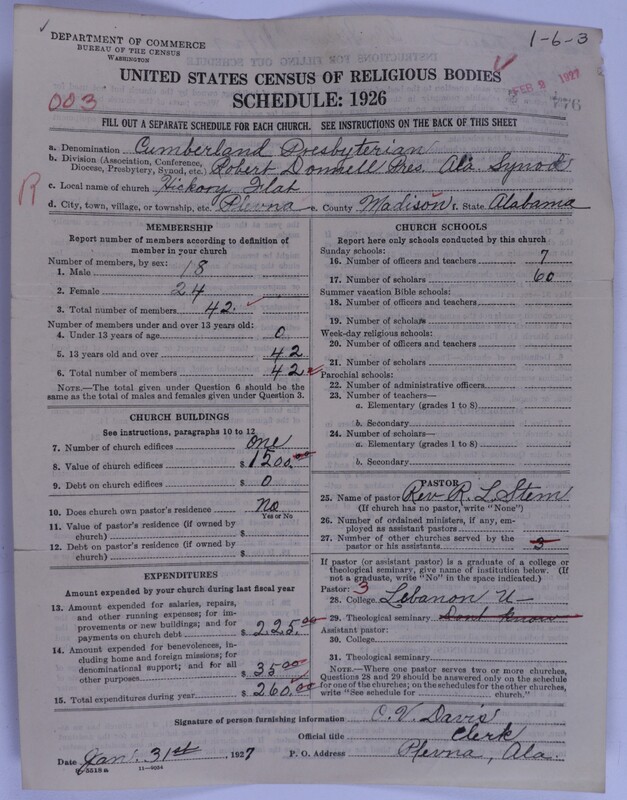 1-6-3
DEPARTMENT OF COMMERCE
BUREAU OF THE CENSUS
WASHINGTON
UNITED STATES CENSUS OF RELIGIOUS BODIES
FEB 9 1927
003
SCHEDULE: 1926
776
FILL OUT A SEPARATE SCHEDULE FOR EACH CHURCH. SEE INSTRUCTIONS ON THE BACK OF THIS SHEET
a. Denomination Cumberland Presbyterian
b. Division (Association, Conference, Diocese, Presbytery, Synod, etc.) Robert Donnell Pres. Ala. Synod
R
c. Local name of church Hickory Flat
d. City, town, village, or township, etc. Plevna e. County Madison f. State Alabama
MEMBERSHIP
Report number of members according to definition of
member in your church
Number of members, by sex:
1. Male 18
2. Female 24
3. Total number of members 42.
Number of members under and over 13 years old:
4. Under 13 years of age 0
5. 13 years old and over 42
6. Total number of members 42
NOTE.—The total given under Question 6 should be the
same as the total of males and females given under Question 3.
CHURCH BUILDINGS
See instructions, paragraphs 10 to 12
7. Number of church edifices one
8. Value of church edifices $ 1500.00
9. Debt on church edifices $ 0
10. Does church own pastor's residence? No
Yes or No
11. Value of pastor's residence (if owned by
church) $
12. Debt on pastor's residence (if owned by
church) $
EXPENDITURES
Amount expended by your church during last fiscal year
13. Amount expended for salaries, repairs,
and other running expenses; for im-
provements or new buildings; and for
payments on church debt $ 225.00
14. Amount expended for benevolences, in-
cluding home and foreign missions; for
denominational support; and for all
other purposes $ 35.00
15. Total expenditures during year $ 260.00
CHURCH SCHOOLS
Report here only schools conducted by this church
Sunday schools:
16. Number of officers and teachers 7
17. Number of scholars 60
Summer vacation Bible schools:
18. Number of officers and teachers
19. Number of scholars
Week-day religious schools:
20. Number of officers and teachers
21. Number of scholars
Parochial schools:
22. Number of administrative officers
23. Number of teachers—
a. Elementary (grades 1 to 8)
b. Secondary
24. Number of scholars—
a. Elementary (grades 1 to 8)
b. Secondary
PASTOR
25. Name of pastor Rev. R. L. Stem
(If church has no pastor, write "None")
26. Number of ordained ministers, if any, em-
ployed as assistant pastors
27. Number of other churches served by the
pastor or his assistants 3
If pastor (or assistant pastor) is a graduate of a college or
theological seminary, give name of institution below. (If
not a graduate, write "No" in the space indicated.)
Pastor: 3
28. College Lebanon U—
29. Theological seminary Dont know
Assistant pastor:
30. College
31. Theological seminary
NOTE.—Where one pastor serves two or more churches,
Questions 28 and 29 should be answered only on the schedule
for one of the churches; on the schedules for the other churches,
write "See schedule for church."
Signature of person furnishing information O. V. Davis
Official title Clerk
Date Jan. 31st, 1927 P. O. Address Plevna, Ala.
8-3518a 11—9034